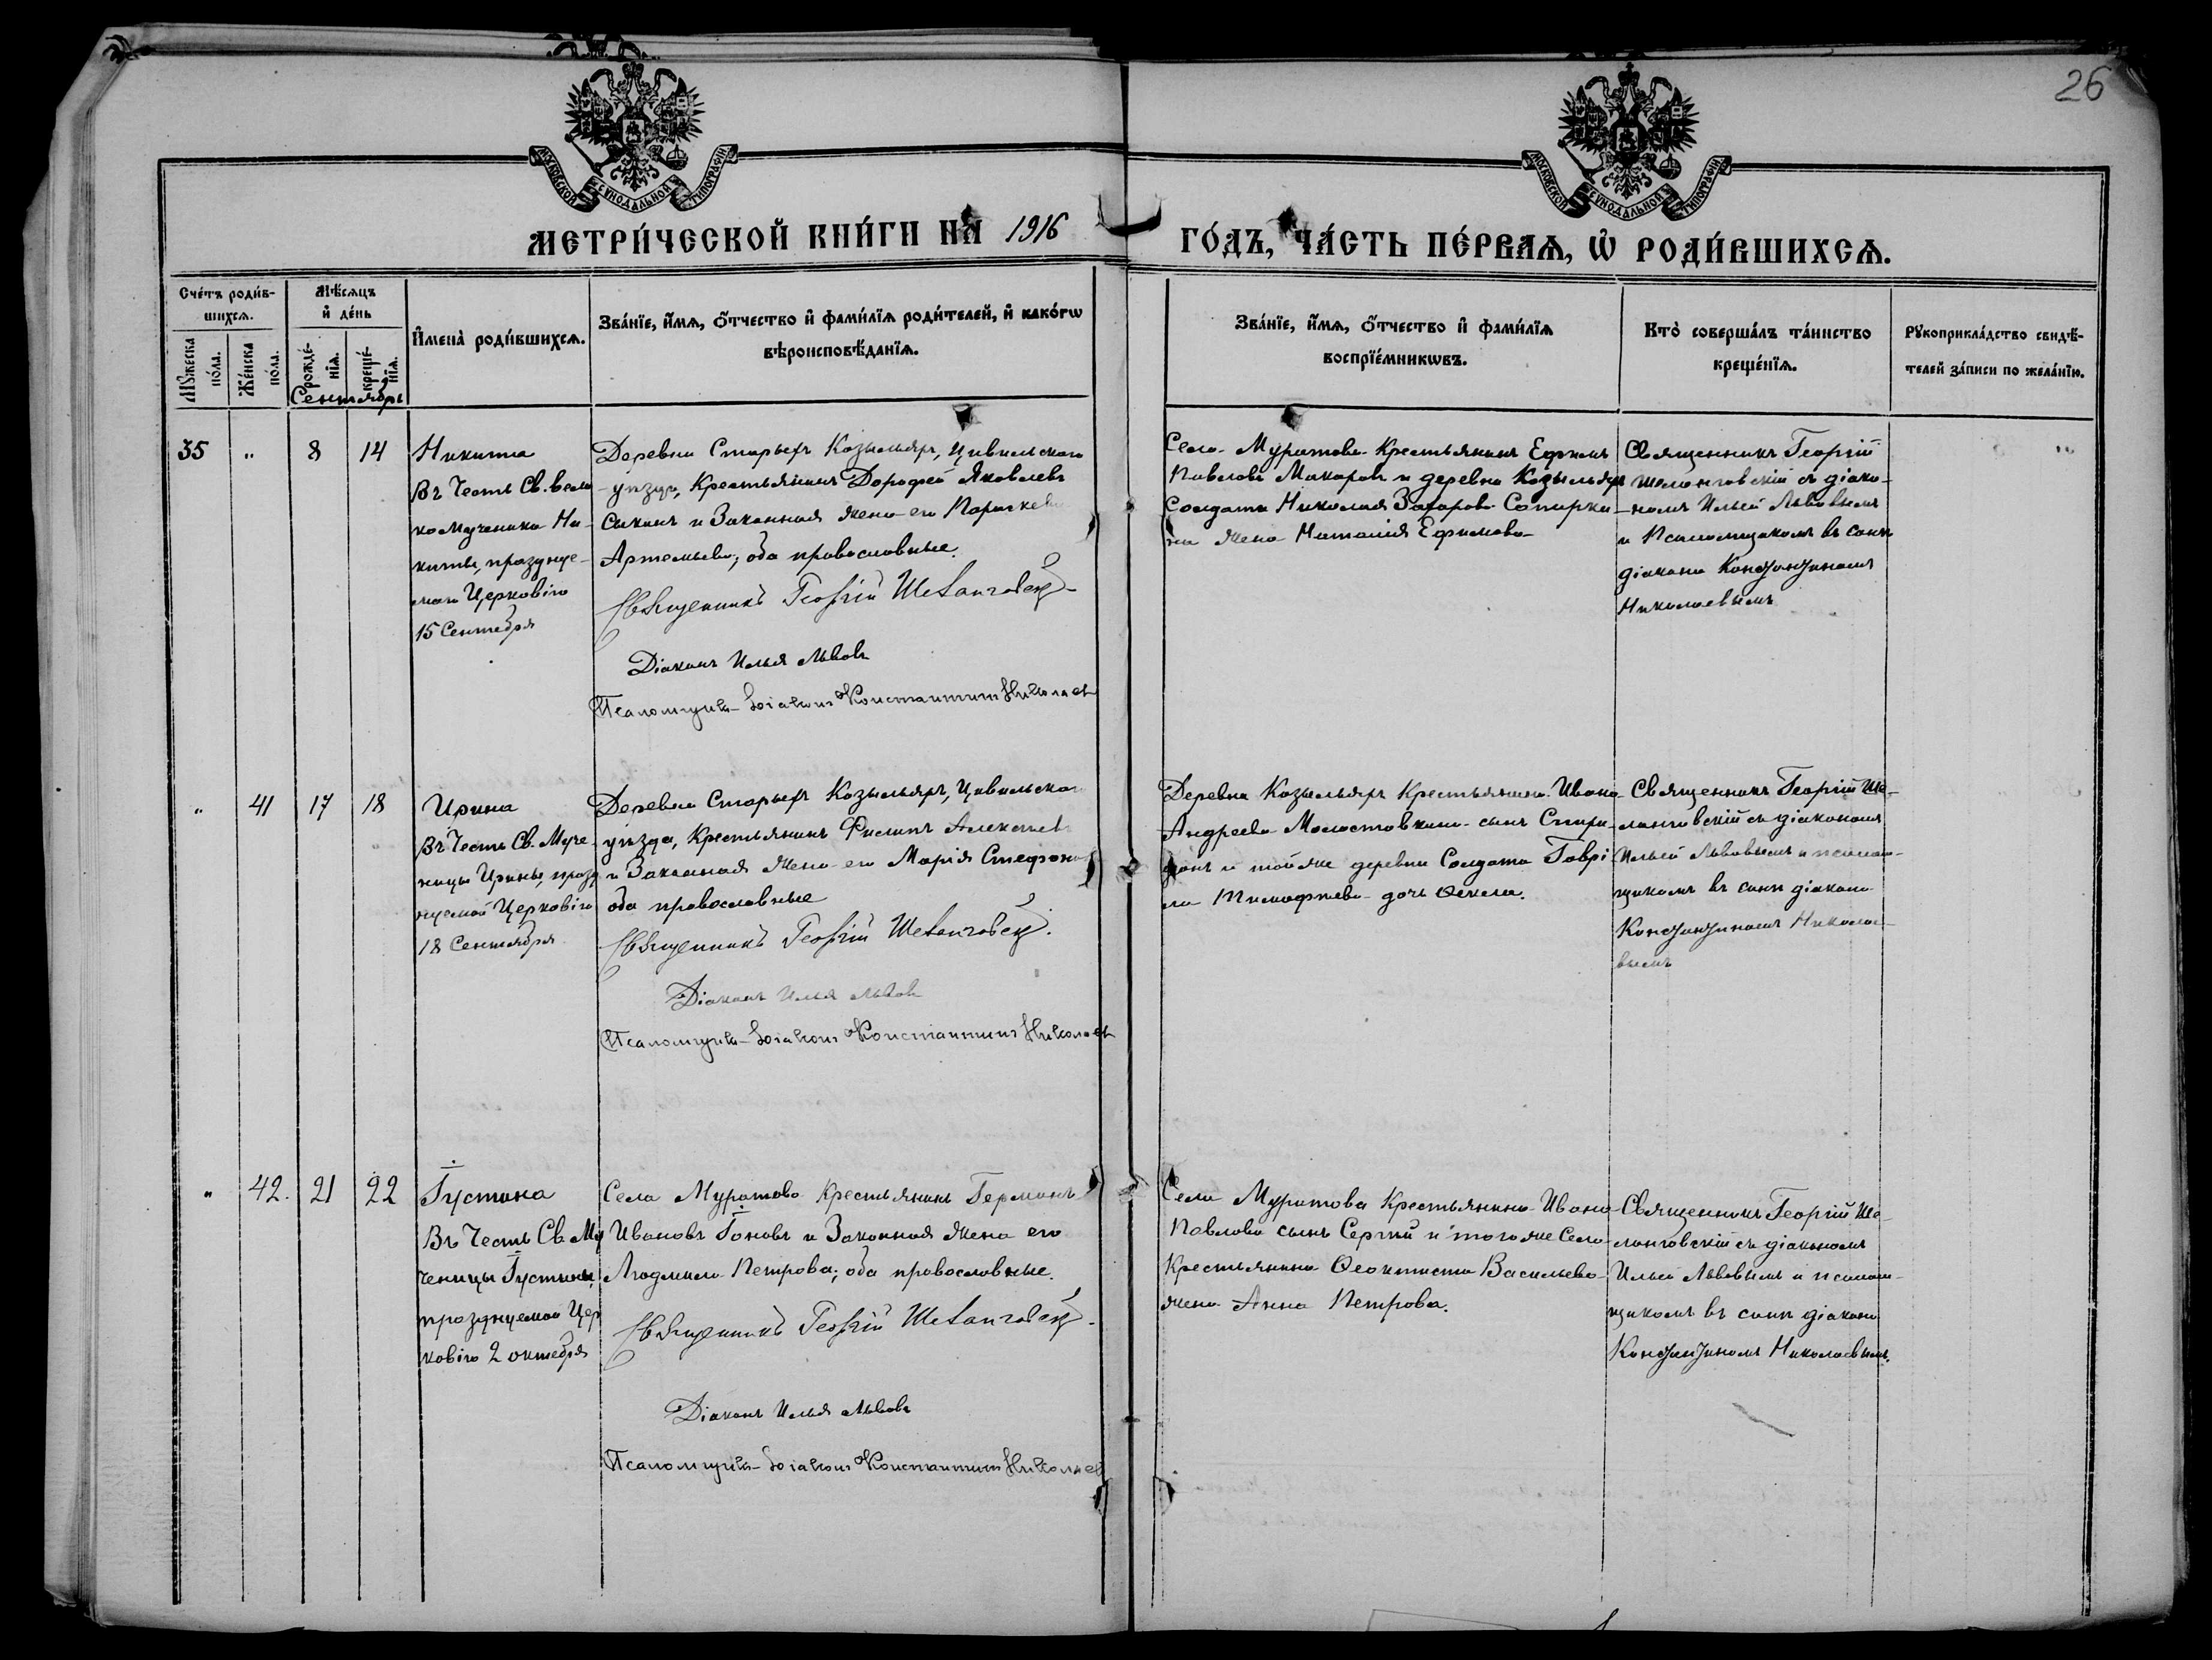 26
МОСКОВСКОЙ СѴНОДАЛЬНОЙ ТИПОГРАФІИ
МОСКОВСКОЙ СѴНОДАЛЬНОЙ ТИПОГРАФІИ
МЕТРИ́ЧЕСКОЙ КНИ́ГИ НА 1916
ГО́ДЪ, ЧА́СТЬ ПЕ́РВАѦ, Ѡ҆ РОДИ́ВШИХСѦ.
Сче́тъ роди́в-
шихсѧ.
Мꙋ́жеска
по́ла.
Же́нска
по́ла.
Мѣ́сѧцъ
и҆ де́нь
рожде́-
нїѧ.
креще́-
нїѧ.
Сентябрь
И҆мена̀ роди́вшихсѧ.
Зва́нїе, и҆́мѧ, ѻ҆́тчество и҆ фами́лїѧ роди́телей, и҆ како́гѡ
вѣроисповѣ́данїѧ.
Зва́нїе, и҆́мѧ, ѻ҆́тчество и҆ фами́лїѧ
воспрїе́мникѡвъ.
Кто̀ соверша́лъ та́инство
креще́нїѧ.
Рꙋкоприкла́дство свидѣ́-
телей за́писи по жела́нїю.
35 " 8 14
Никита
Въ Честь Св. вели
комученика Ни-
киты, празднуе-
маго Церковію
15 Сентября
Деревни Старыхъ Козыльяръ, Цивильскаго
уѣзда, Крестьянинъ Дорофей Яковлевъ
и Законная жена его Параскева
Артемьева; оба православные.
Священникъ Георгій Шеланговскій
Діаконъ Илья Львовъ
Псаломщикъ-діаконъ Константинъ Николаевъ
Села Муратова Крестьянинъ Ефимъ
Павловъ Макаровъ и деревни Козыльяръ
Солдата Николая Захарова Сапирки
на жена Наталія Ефимова
Священникъ Георгій
Шеланговскій съ діако-
номъ Ильей Львовымъ
и Псаломщикомъ въ санѣ
діакона Константиномъ
Николаевымъ
" 41 17 18
Ирина
Въ Честь Св. Муче-
ницы Ирины, празд
нуемой Церковію
18 Сентября
Деревни Старыхъ Козыльяръ, Цивильскаго
уѣзда, Крестьянинъ Филиппъ Алексѣевъ
и Законная жена его Марія Стефанова
оба православные
Священникъ Георгій Шеланговскій.
Діаконъ Илья Львовъ
Псаломщикъ-діаконъ Константинъ Николаевъ
Деревни Козыльяръ Крестьянина Ивана
Андреева Молостовкина сынъ Спири-
донъ и той же деревни Солдата Гаврі-
ла Тимофѣева дочь Ѳекла.
Священникъ Георгій Ше-
ланговскій съ діакономъ
Ильей Львовымъ и псалом-
щикомъ въ санѣ діакона
Константиномъ Николае-
вымъ
" 42. 21 22
Іустина
Въ Честь Св. Му
ченицы Іустины,
празднуемой Цер
ковію 2 октября
Села Муратова Крестьянинъ Германъ
Ивановъ Іоновъ и Законная жена его
Людмила Петрова; оба православные.
Священникъ Георгій Шеланговскій.
Діаконъ Илья Львовъ
Псаломщикъ-діаконъ Константинъ Николаевъ
Села Муратова Крестьянина Ивана
Павлова сынъ Сергѣй и того же Села
Крестьянина Ѳеоктиста Васильева
жена Анна Петрова.
Священникъ Георгій Ше-
ланговскій съ діакономъ
Ильей Львовымъ и псалом-
щикомъ въ санѣ діакона
Константиномъ Николаевымъ.